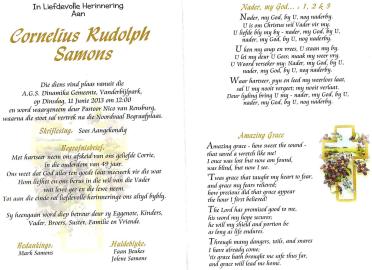 In Liefdevolle Herinnering
Aan
Cornelius Rudolph
Samons
Die diens vind plaas vanuit die
A.G.S. Dinamika Gemeente, Vanderbijlpark,
op Dinsdag, 11 Junie 2013 om 12:00
en word waargeneem deur Pastoor Nico van Rensburg,
waarna die stoet sal vertrek na die Noordoosdal Begraafplaas.
Skriflesing: Soos Aangekondig
Begrafnisbrief.
Met hartseer neem ons afskeid van ons geliefde Corrie,
in die ouderdom van 49 jaar.
Ons weet dat God alles ten goede laat meewerk vir die wat
Hom liefhet en ons berus in die wil van die Vader
wat lewe gee en die lewe neem.
Tot aan die einde sal liefdevolle herinneringe van ons altyd bybly.
Sy heengaan word diep betreur deur sy Eggenote, Kinders,
Vader, Broers, Suster, Familie en Vriende.
Bedankings:
Mark Samons
Huldeblyke:
Faan Beukes
Jolene Samons
Nader, my God... : 1, 2 & 5
Nader, my God, by U, nog naderby.
U is om Christus wil Vader vir my.
U liefde bly my by - nader, my God, by U,
nader, my God, by U, nog naderby.
U ken my angs en vrees, U staan my by.
U let my deur U Gees; maak my weer vry.
U Woord verseker my: Nader, my God, by U,
nader, my God, by U, nog naderby.
Waar hartseer, pyn en leed my weerloos laat,
sal U my nooit vergeet; my nooit verlaat.
Deur lyding bring U my - nader, my God, by U,
nader, my God, by U, nog naderby.
Amazing Grace
Amazing grace - how sweet the sound -
that saved a wretch like me!
I once was lost but now am found,
was blind, but now I see.
'Twas grace that taught my heart to fear,
and grace my fears relieved;
how precious did that grace appear
the hour I first believed!
The Lord has promised good to me,
his word my hope secures;
he will my shield and portion be
as long as life endures.
Through many dangers, toils, and snares
I have already come;
'tis grace hath brought me safe thus far,
and grace will lead me home.